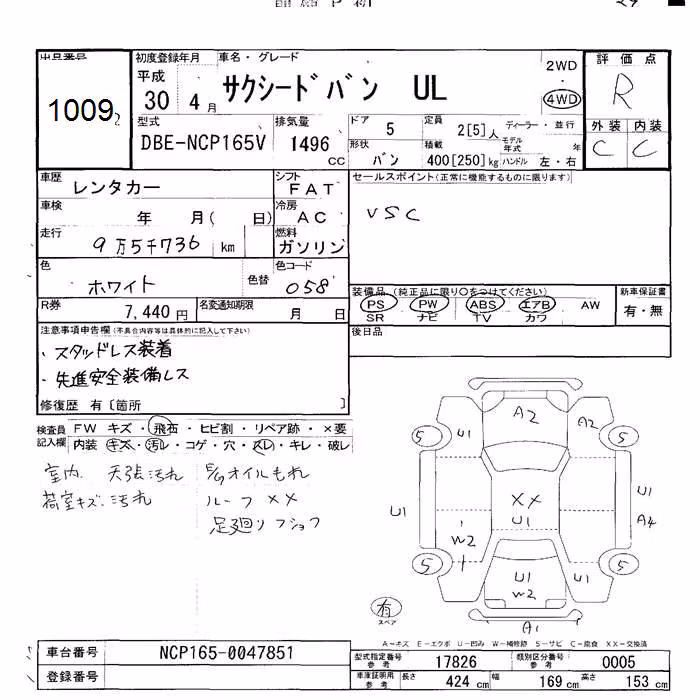 出品番号
1009
初度登録年月
平成
30 4月
車名・グレード
サクシードバン UL
2WD
4WD
評価点
R
型式
DBE-NCP165V
排気量
1496
CC
ドア
5
定員
2[5]人
ディーラー・並行
形状
バン
積載
400[250]kg
モデル年式 年
ハンドル 左・右
外装 内装
C C
車歴
レンタカー
シフト
FAT
車検
年 月( 日)
冷房
AC
走行
9万5千736 km
燃料
ガソリン
色
ホワイト
色替
色コード
058
R券
7,440円
名変通知期限
月 日
セールスポイント(正常に機能するものに限ります)
VSC
装備品(純正品に限り○をつけてください)
PS PW ABS エアB AW
SR ナビ TV カワ
新車保証書
有・無
後日品
注意事項申告欄(不具合内容等は具体的に記入して下さい)
・スタッドレス装着
・先進安全装備レス
修復歴 有〔箇所 〕
検査員記入欄
FW キズ・飛石・ヒビ割・リペア跡・×要
内装 キズ・汚レ・コゲ・穴・スレ・キレ・破レ
室内 天張汚れ
荷室キズ.汚れ
E/Gオイルもれ
ルーフ XX
足廻りフショク
A2
A2
5
U1
5
U1
U1
A4
XX
U1
W2
5
5
U1
W2
U1
有
スペア
A1
A－キズ E－エクボ U－凹み W－補修跡 S－サビ C－腐食 XX－交換済
車台番号
NCP165-0047851
登録番号
型式指定番号
参考
17826
類別区分番号
参考
0005
車庫証明用
参考
長さ
424 cm
幅
169 cm
高さ
153 cm